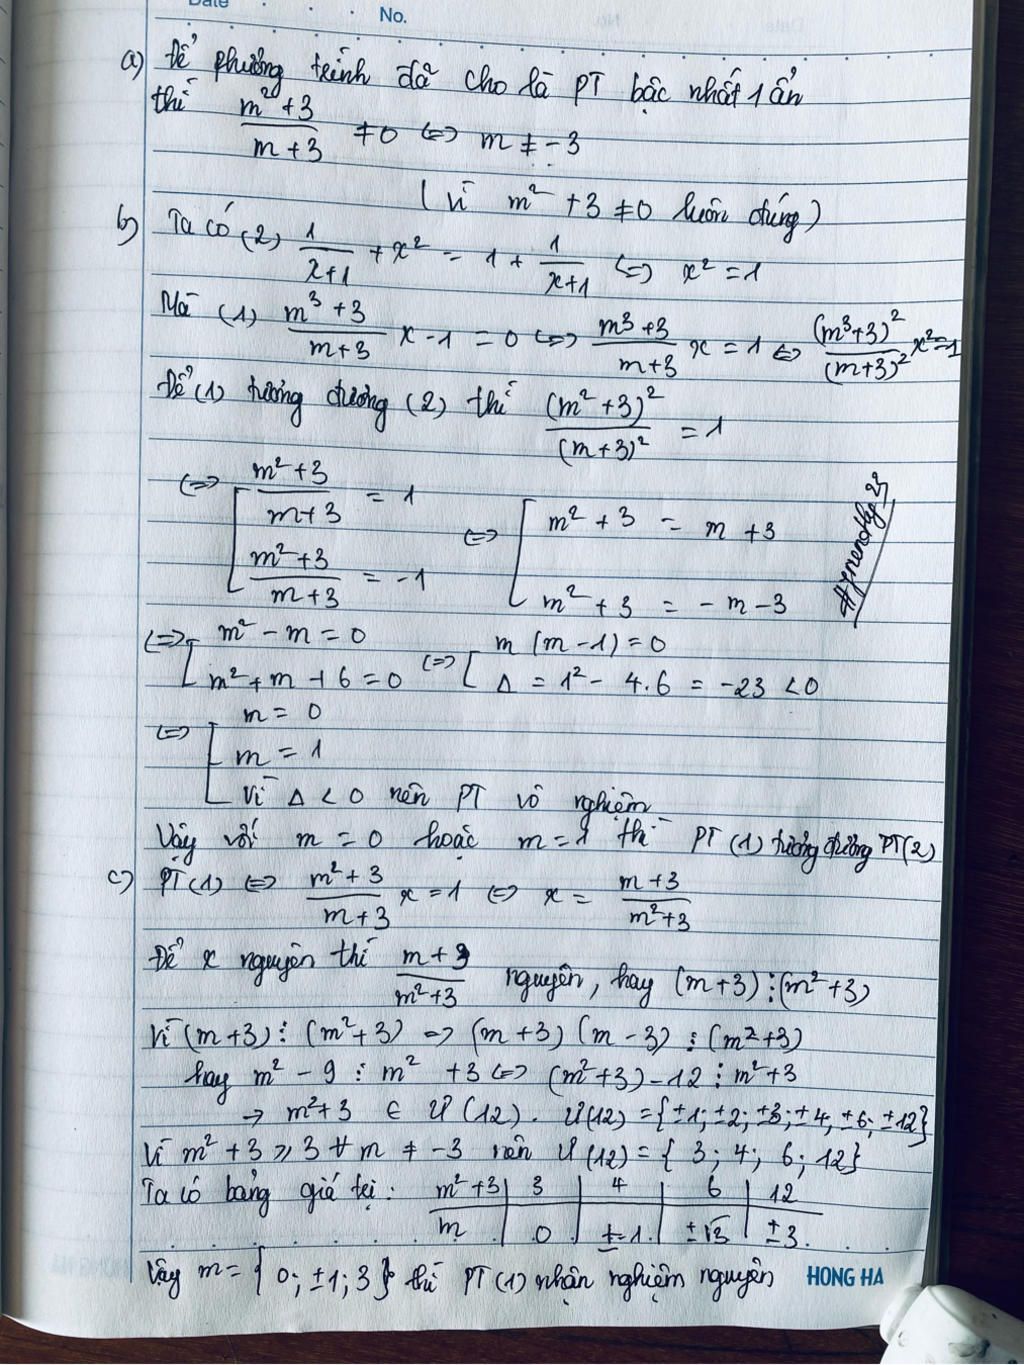 Date No.
a) Để phương trình đã cho là PT bậc nhất 1 ẩn
thì (m²+3)/(m+3) ≠ 0 <=> m ≠ -3
(Vì m² + 3 ≠ 0 luôn đúng)
b) Ta có (2) 1/(x+1) + x² = 1 + 1/(x+1) <=> x² = 1
Mà (1) (m³+3)/(m+3) x - 1 = 0 <=> (m³+3)/(m+3) x = 1 <=> (m³+3)²/(m+3)² x² = 1
Để (1) tương đương (2) thì (m²+3)²/(m+3)² = 1
<=> [ (m²+3)/(m+3) = 1 <=> [ m² + 3 = m + 3
(m²+3)/(m+3) = -1 m² + 3 = - m - 3
<=> [ m² - m = 0 <=> [ m (m - 1) = 0
m² + m + 6 = 0 Δ = 1² - 4.6 = -23 < 0
<=> [ m = 0
m = 1
Vì Δ < 0 nên PT vô nghiệm
Vậy với m = 0 hoặc m = 1 thì PT (1) tương đương PT(2)
c) PT(1) <=> (m²+3)/(m+3) x = 1 <=> x = (m+3)/(m²+3)
Để x nguyên thì (m+3)/(m²+3) nguyên, hay (m+3) ⋮ (m²+3)
Vì (m+3) ⋮ (m²+3) => (m+3) (m-3) ⋮ (m²+3)
hay m² - 9 ⋮ m² + 3 <=> (m²+3) - 12 ⋮ m²+3
→ m²+3 ∈ Ư(12). Ư(12) = {±1; ±2; ±3; ±4; ±6; ±12}
Vì m² + 3 ≥ 3 ∀ m ≠ -3 nên Ư(12) = { 3; 4; 6; 12}
Ta có bảng giá trị: m²+3 | 3 | 4 | 6 | 12
m | 0 | ±1 | ±√3 | ±3
Vậy m = { 0; ±1; 3 } thì PT(1) nhận nghiệm nguyên
HONG HA